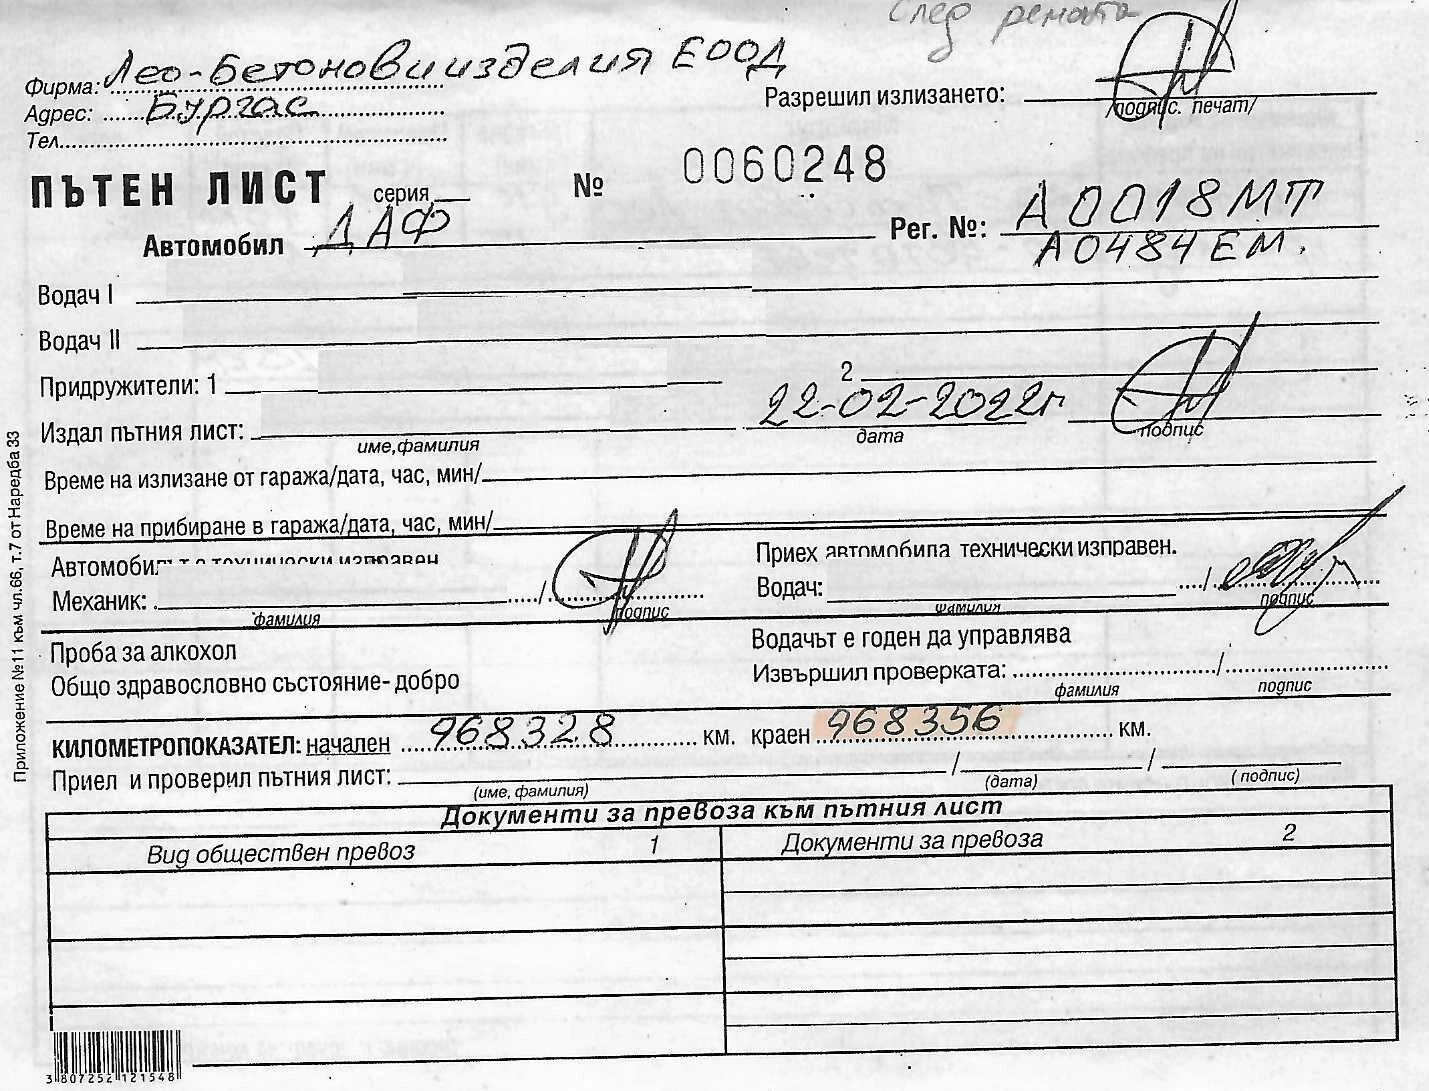 След ремонта
Фирма: Лео-Бетонови изделия ЕООД
Адрес: Бургас
Тел.
Разрешил излизането:
/подпис. печат/
ПЪТЕН ЛИСТ серия № 0060248
Автомобил ДАФ Рег. №: А0018МТ
А0484ЕМ.
Водач I
Водач II
Придружители: 1 2
Издал пътния лист: 22-02-2022г
име,фамилия дата подпис
Време на излизане от гаража/дата, час, мин/
Време на прибиране в гаража/дата, час, мин/
Автомобилът е технически изправен Приех автомобила технически изправен.
Механик: / Водач: /
фамилия подпис фамилия подпис
Проба за алкохол Водачът е годен да управлява
Общо здравословно състояние- добро Извършил проверката: /
фамилия подпис
КИЛОМЕТРОПОКАЗАТЕЛ: начален 968328 км. краен 968356 км.
Приел и проверил пътния лист: / /
(име, фамилия) (дата) (подпис)
Документи за превоза към пътния лист
Вид обществен превоз 1 Документи за превоза 2
3 807252 121548
Приложение №11 към чл.66, т.7 от Наредба 33